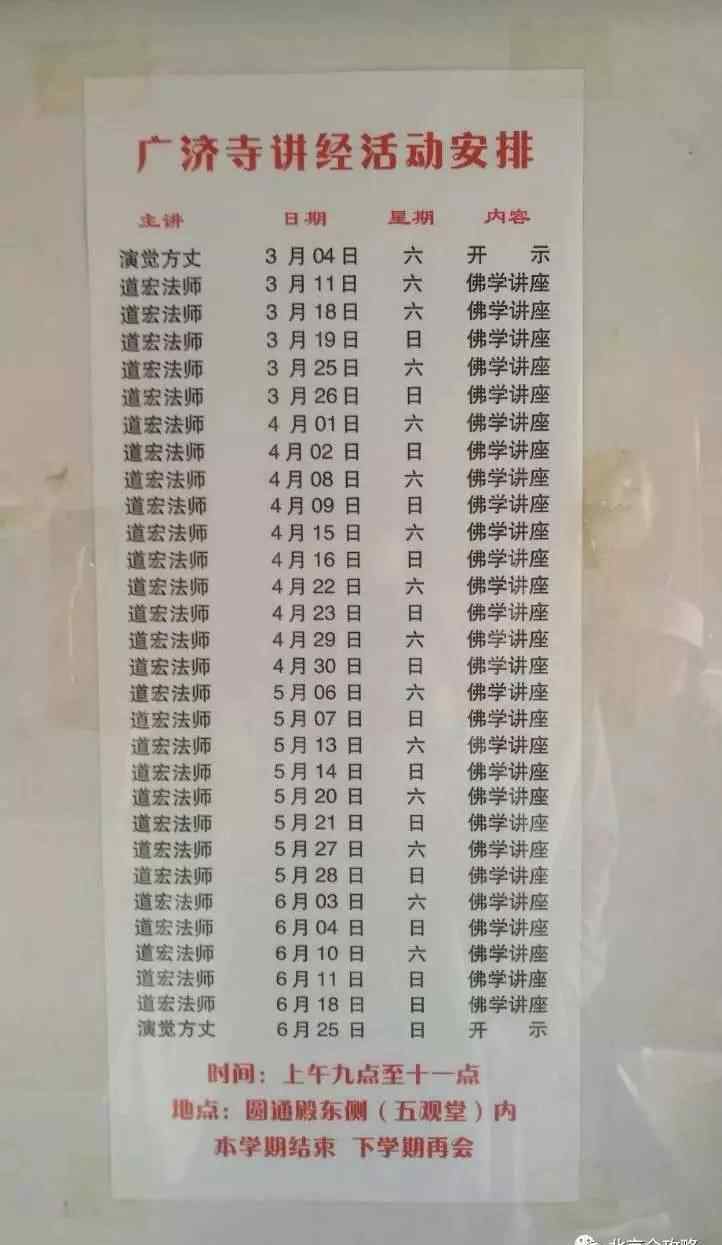 广济寺讲经活动安排
主讲 日期 星期 内容
演觉方丈 3 月 04 日 六 开 示
道宏法师 3 月 11 日 六 佛学讲座
道宏法师 3 月 18 日 六 佛学讲座
道宏法师 3 月 19 日 日 佛学讲座
道宏法师 3 月 25 日 六 佛学讲座
道宏法师 3 月 26 日 日 佛学讲座
道宏法师 4 月 01 日 六 佛学讲座
道宏法师 4 月 02 日 日 佛学讲座
道宏法师 4 月 08 日 六 佛学讲座
道宏法师 4 月 09 日 日 佛学讲座
道宏法师 4 月 15 日 六 佛学讲座
道宏法师 4 月 16 日 日 佛学讲座
道宏法师 4 月 22 日 六 佛学讲座
道宏法师 4 月 23 日 日 佛学讲座
道宏法师 4 月 29 日 六 佛学讲座
道宏法师 4 月 30 日 日 佛学讲座
道宏法师 5 月 06 日 六 佛学讲座
道宏法师 5 月 07 日 日 佛学讲座
道宏法师 5 月 13 日 六 佛学讲座
道宏法师 5 月 14 日 日 佛学讲座
道宏法师 5 月 20 日 六 佛学讲座
道宏法师 5 月 21 日 日 佛学讲座
道宏法师 5 月 27 日 六 佛学讲座
道宏法师 5 月 28 日 日 佛学讲座
道宏法师 6 月 03 日 六 佛学讲座
道宏法师 6 月 04 日 日 佛学讲座
道宏法师 6 月 10 日 六 佛学讲座
道宏法师 6 月 11 日 日 佛学讲座
道宏法师 6 月 18 日 日 佛学讲座
演觉方丈 6 月 25 日 日 开 示
时间：上午九点至十一点
地点：圆通殿东侧（五观堂）内
本学期结束 下学期再会
北京全攻略